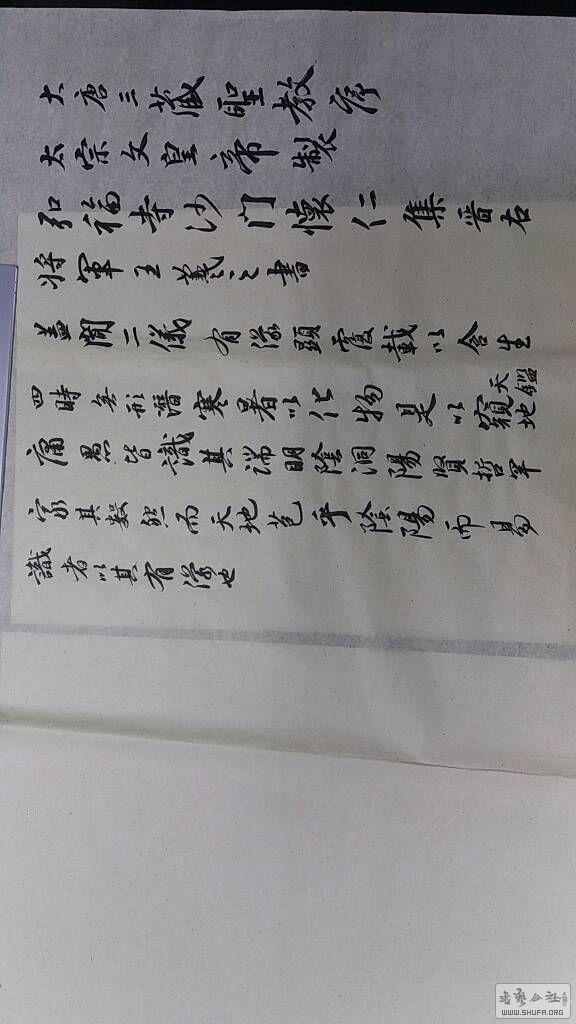 大唐三藏聖教序
太宗文皇帝製
弘福寺沙门懷仁集晉右
將軍王羲之書
蓋聞二儀有像顯覆載以含生
四時無形潛寒暑以化物是以窺天鑑地
庸愚皆識其端明陰洞陽賢哲罕
窮其數然而天地苞乎陰陽而易
識者以其有像也
书艺公社
WWW.SHUFA.ORG